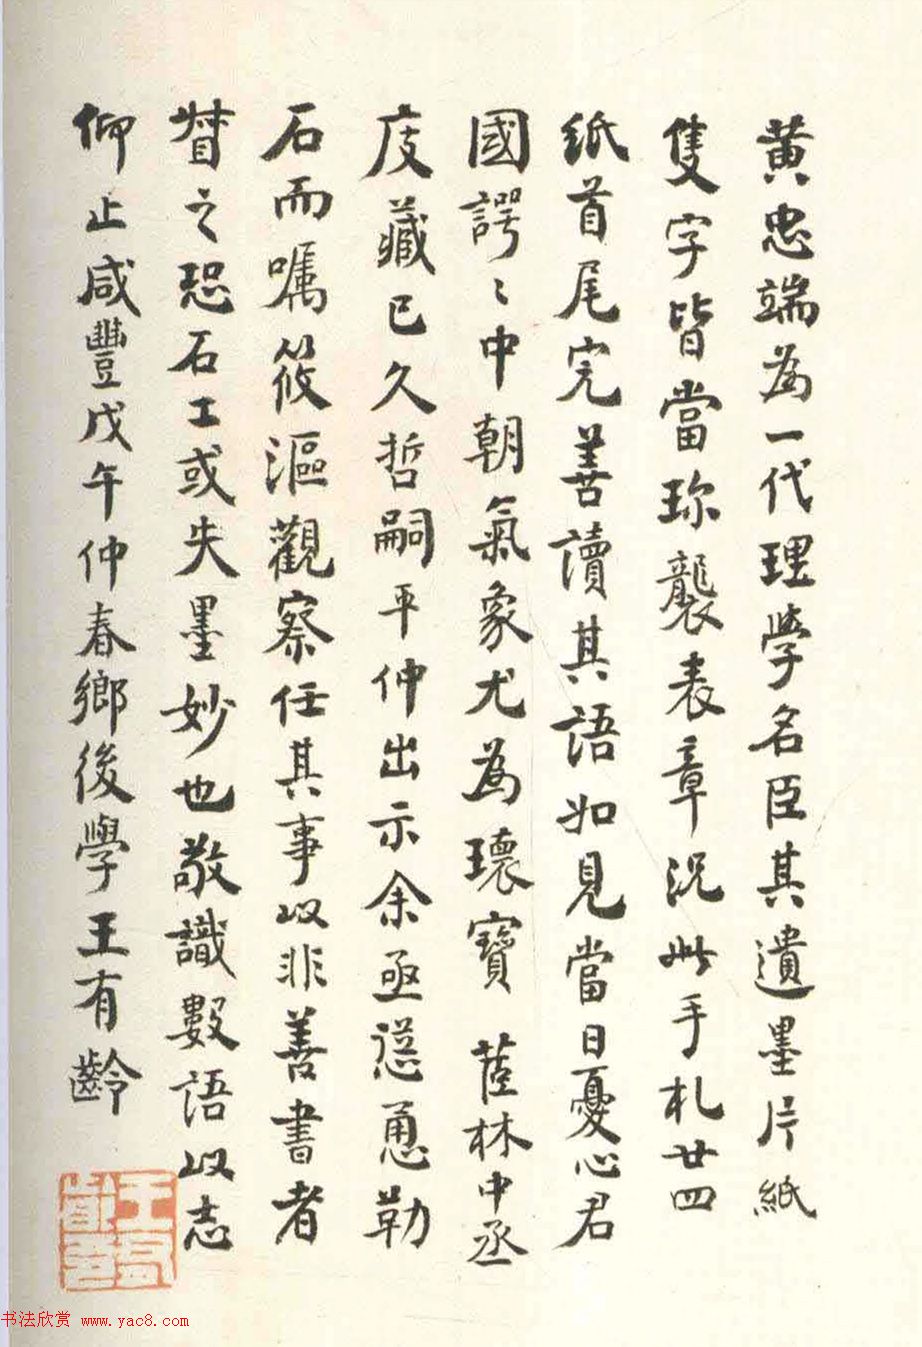 黄忠端為一代理學名臣其遺墨片紙
隻字皆當珎襲表章況此手札廿四
紙首尾完善讀其語如見當日憂心君
國諤〻中朝氣象尤為瓌寶 茝林中丞
庋藏已久哲嗣平仲出示余亟慫恿勒
石而囑筱漚觀察任其事以非善書者
督之恐石工或失墨妙也敬識數語以志
仰止咸豐戊午仲春鄉後學王有齡
書法欣赏 www.yac8.com